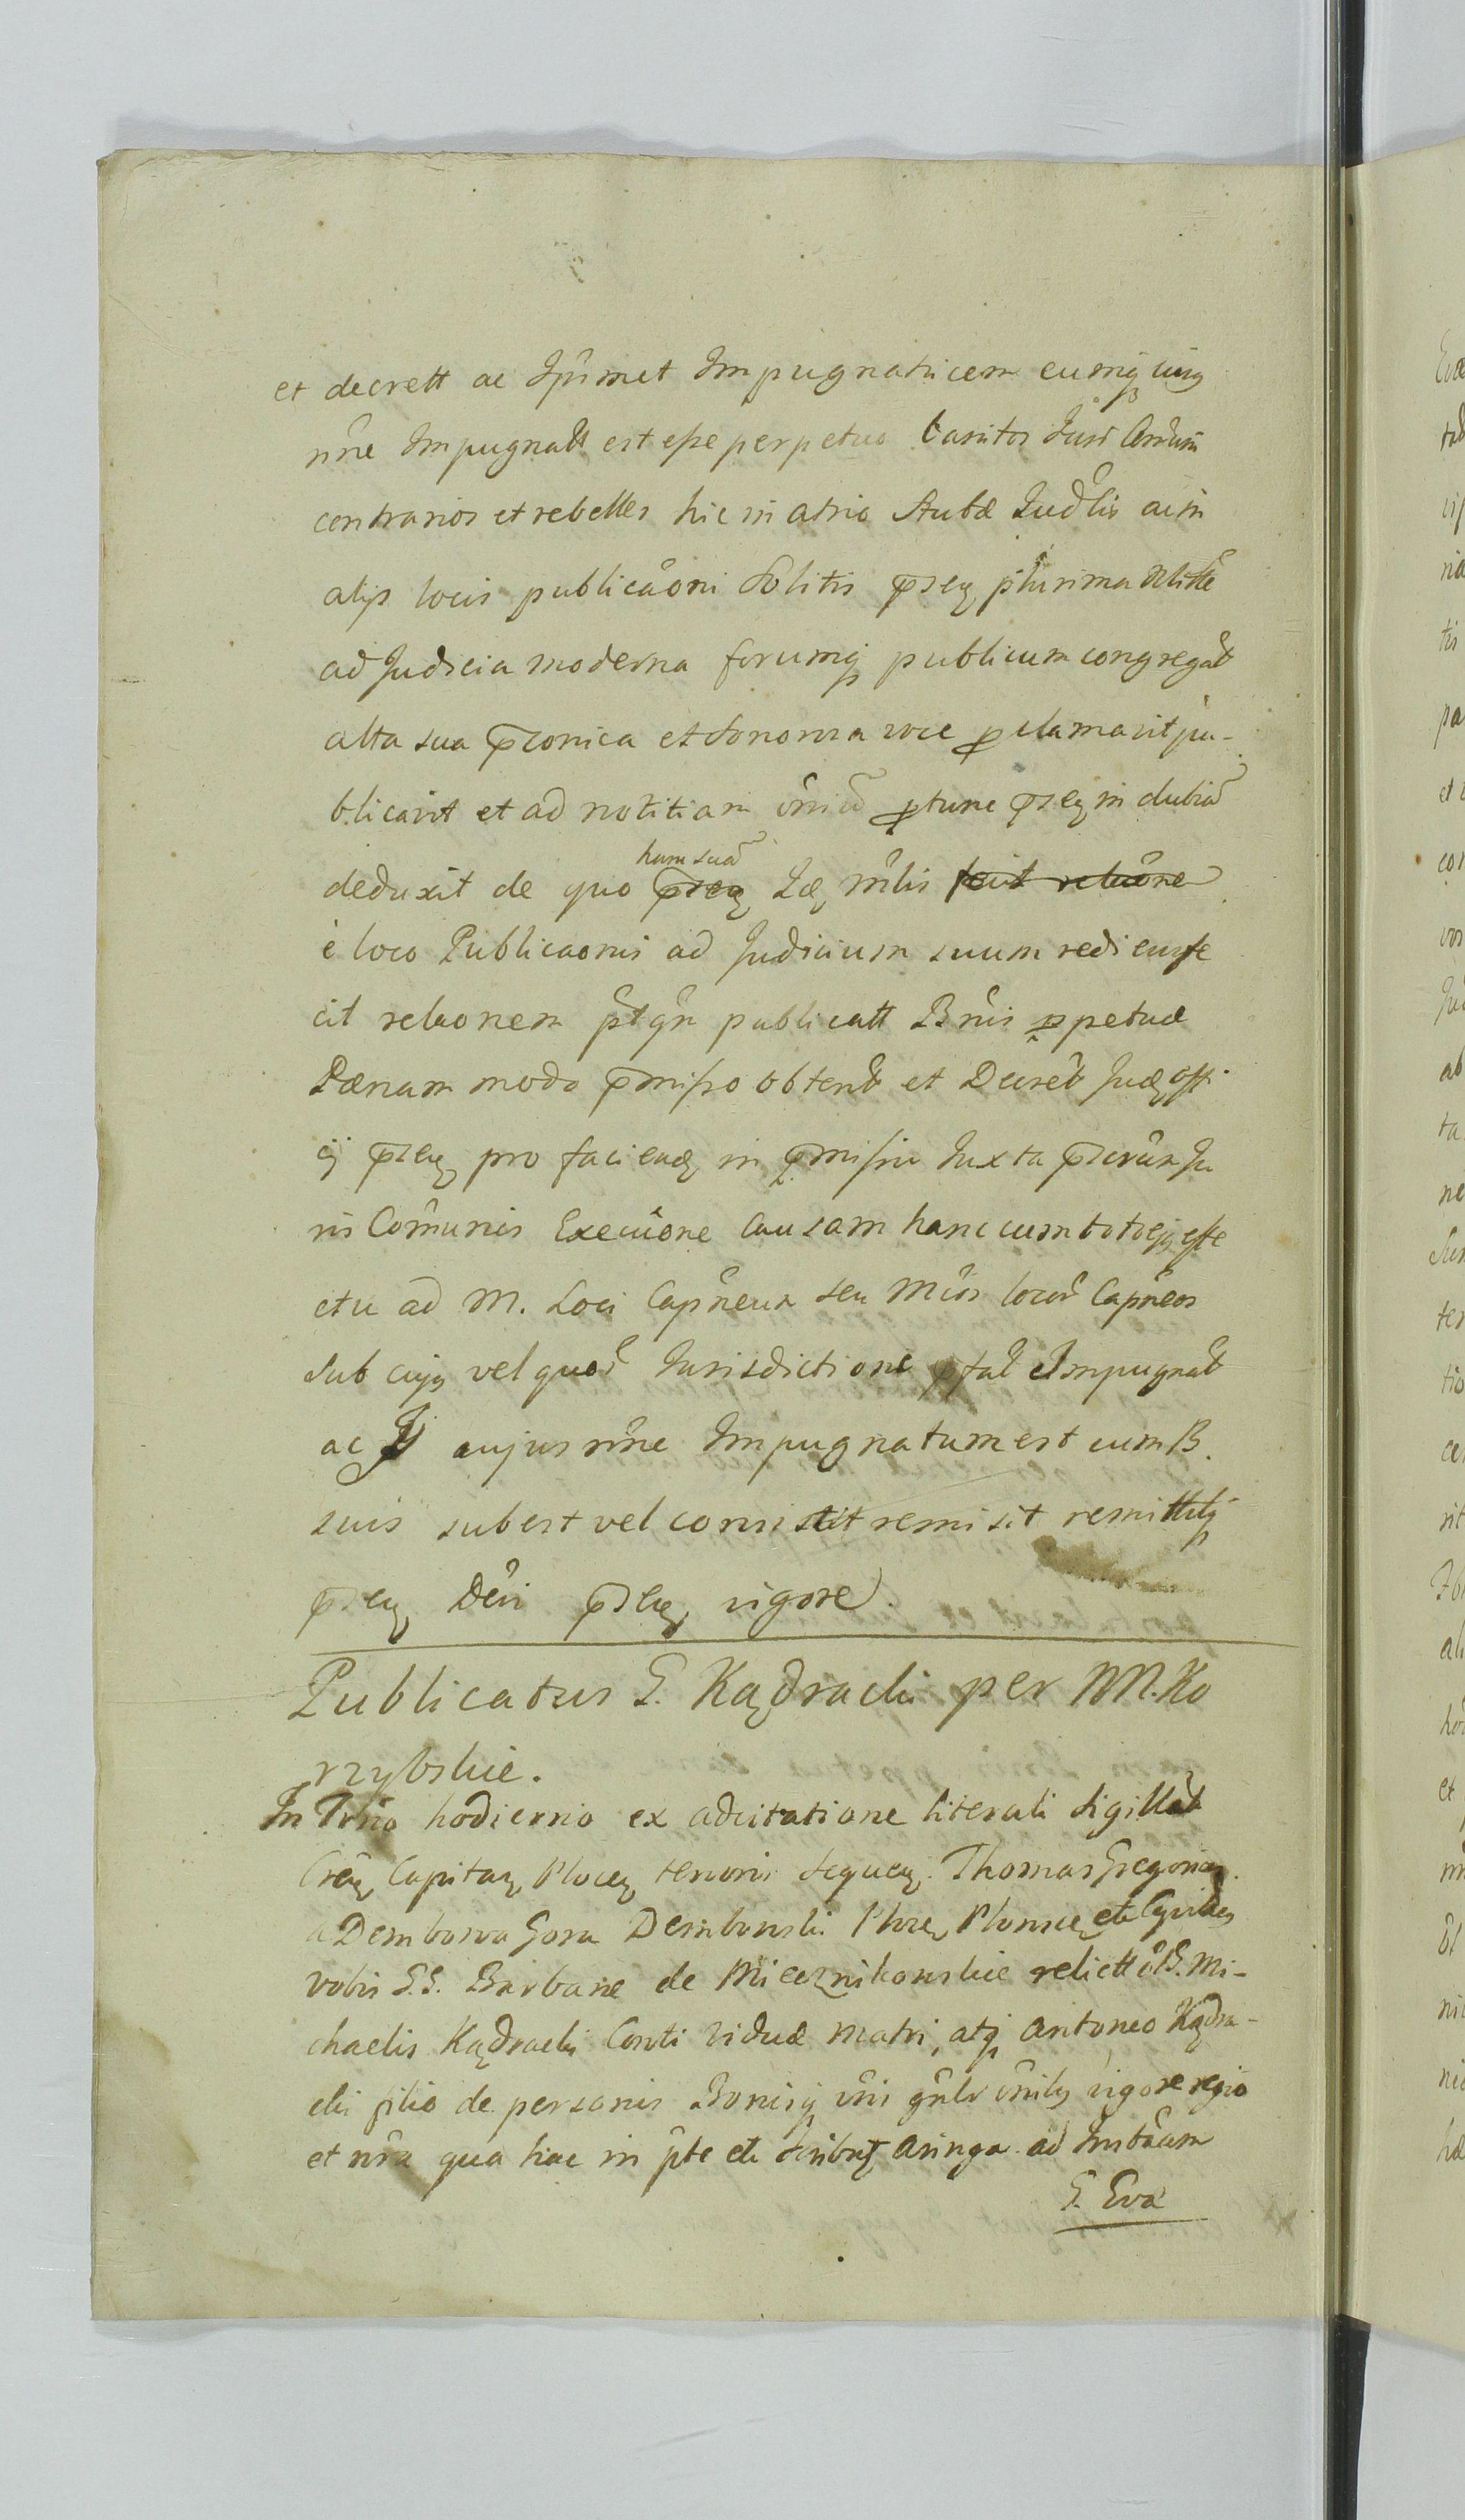 et decrett ac Ipsmet Impugnatricem eumq cujus
nne Impugnatt est esse perpetuo banitos Juri Comum
contrarios et rebelles hic in atrio Stubæ Judlis ac in
alijs locis publicaoni solitis pseñ plurima Nblitte
ad Judicia moderna forumq publicum congregat
alta sua pconica et sonorosa voce pclamavit pu-
blicavit et ad notitiam oniu ptunc pseñ in dubiā
deduxit de quo
hanc suā
mlis fecit relaōne
e loco Publicaonis ad Judicium suum rediens fe
cit relaonem ptqn publicatt Bnis ppetuæ
Pænam modo pmisso obtent et Decret Jud offi
cij pseñ pro faciend in pmissis Juxta pscrün Ju
ris Comunis Execuīone Causam hanc cum toto ejq effe
ctu ad M. Loci Capneum seu Mcos locor Capneos
sub cujq vel quor Jurisdictione pfat Impugnat
ac cujus nne Impugnatum est cum B.
suis subest vel consistit remisit remittitq
pseñ Dcri pseñ vigore.
Publicatus G. Kędracki per MM. Ko
rzybskie.
In Trno hodierno ex adcitatione literali sigillat
Cren Capitan Plocen tenoris sequen. Thomas Gregorius
a Dembowa Gora Dembowski Plocen Plonscen etc Cpitaneus
vobis G.G. Barbaræ de Miecznikowskie relictt ō G. Mi-
chaelis Kędracki Consti viduæ matri, atq Antonio Kędra-
cki filio de personis Bonisq vris gnlr onibq vigore regio
et nra qua hac in pte etc fsibnq aringa ad Instām
G. Evæ